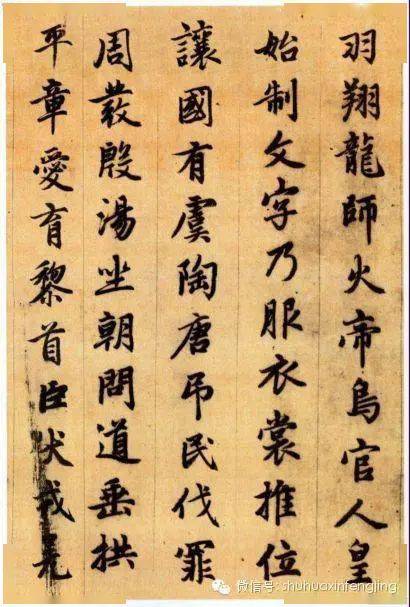 羽翔龍師火帝鳥官人皇
始制文字乃服衣裳推位
讓國有虞陶唐吊民伐罪
周發殷湯坐朝問道垂拱
平章愛育黎首臣伏戎羌
微信号: shuhuaxinfengjing